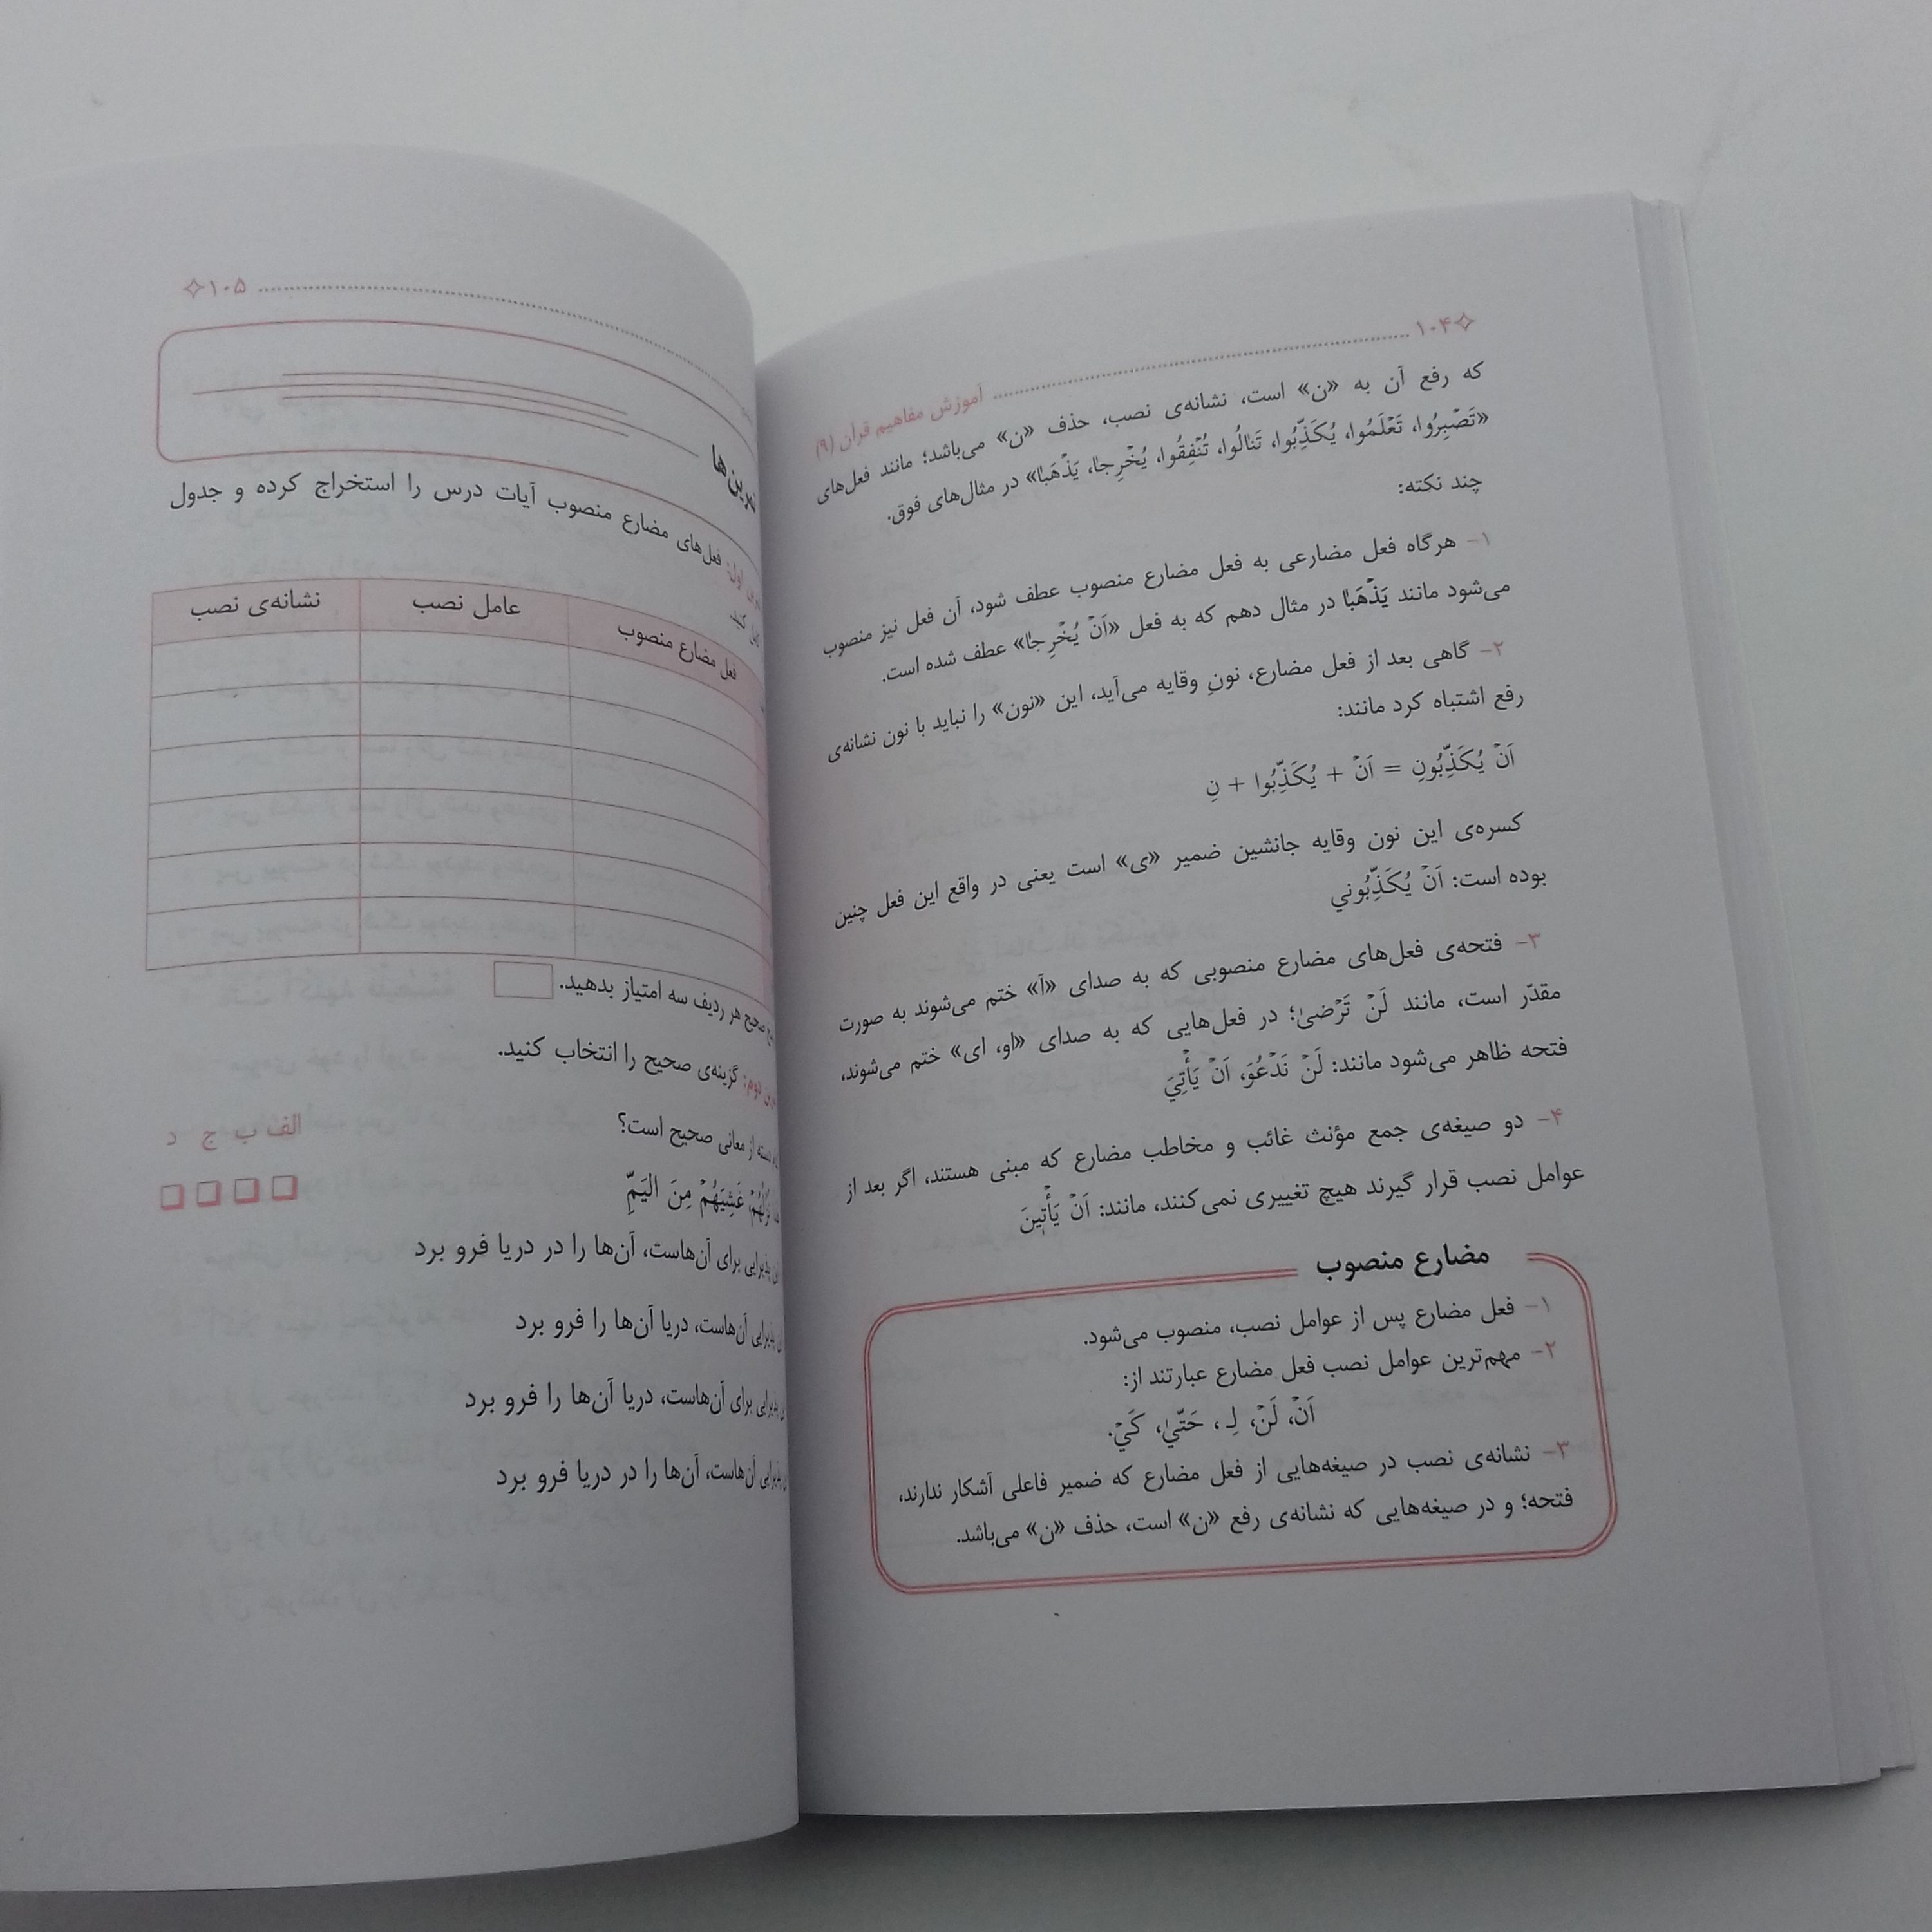 ۱۰۴
آموزش مفاهیم قرآن (۹)
که رفع آن به «ن» است، نشانه‌ی نصب، حذف «ن» می‌باشد؛ مانند فعل‌های
«تَصْبِرُوا، تَعْلَمُوا، يُكَذِّبُوا، تَنالُوا، تُنْفِقُوا، يُخْرِجا، يَذْهَبا» در مثال‌های فوق.
چند نکته:
۱- هرگاه فعل مضارعی به فعل مضارع منصوب عطف شود، آن فعل نیز منصوب
می‌شود مانند يَذْهَبا در مثال دهم که به فعل «اَنْ يُخْرِجا» عطف شده است.
۲- گاهی بعد از فعل مضارع، نونِ وقایه می‌آید، این «نون» را نباید با نون نشانه‌ی
رفع اشتباه کرد مانند:
اَنْ يُكَذِّبُونِ = اَنْ + يُكَذِّبُوا + نِ
کسره‌ی این نون وقایه جانشین ضمیر «ی» است یعنی در واقع این فعل چنین
بوده است: اَنْ يُكَذِّبُوني
۳- فتحه‌ی فعل‌های مضارع منصوبی که به صدای «آ» ختم می‌شوند به صورت
مقدّر است، مانند لَنْ تَرْضىٰ؛ در فعل‌هایی که به صدای «او، ای» ختم می‌شوند،
فتحه ظاهر می‌شود مانند: لَنْ نَدْعُوَ، اَنْ يَأْتِيَ
۴- دو صیغه‌ی جمع مؤنث غائب و مخاطب مضارع که مبنی هستند، اگر بعد از
عوامل نصب قرار گیرند هیچ تغییری نمی‌کنند، مانند: اَنْ يَأْتينَ
مضارع منصوب
۱- فعل مضارع پس از عوامل نصب، منصوب می‌شود.
۲- مهم‌ترین عوامل نصب فعل مضارع عبارتند از:
اَنْ، لَنْ، لِـ ، حَتّيٰ، كَيْ.
۳- نشانه‌ی نصب در صیغه‌هایی از فعل مضارع که ضمیر فاعلی آشکار ندارند،
فتحه؛ و در صیغه‌هایی که نشانه‌ی رفع «ن» است، حذف «ن» می‌باشد.
۱۰۵
فعل‌های مضارع منصوب آیات درس را استخراج کرده و جدول
کنید.
فعل مضارع منصوب عامل نصب نشانه‌ی نصب
صحیح هر ردیف سه امتیاز بدهید.
گزینه‌ی صحیح را انتخاب کنید.
از معانی صحیح است؟
الف ب ج د
غَشِيَهُمْ مِنَ الْيَمِّ
پذیرایی برای آن‌هاست، آن‌ها را در دریا فرو برد
پذیرایی آن‌هاست، دریا آن‌ها را فرو برد
پذیرایی برای آن‌هاست، دریا آن‌ها را فرو برد
پذیرایی آن‌هاست، آن‌ها را در دریا فرو برد